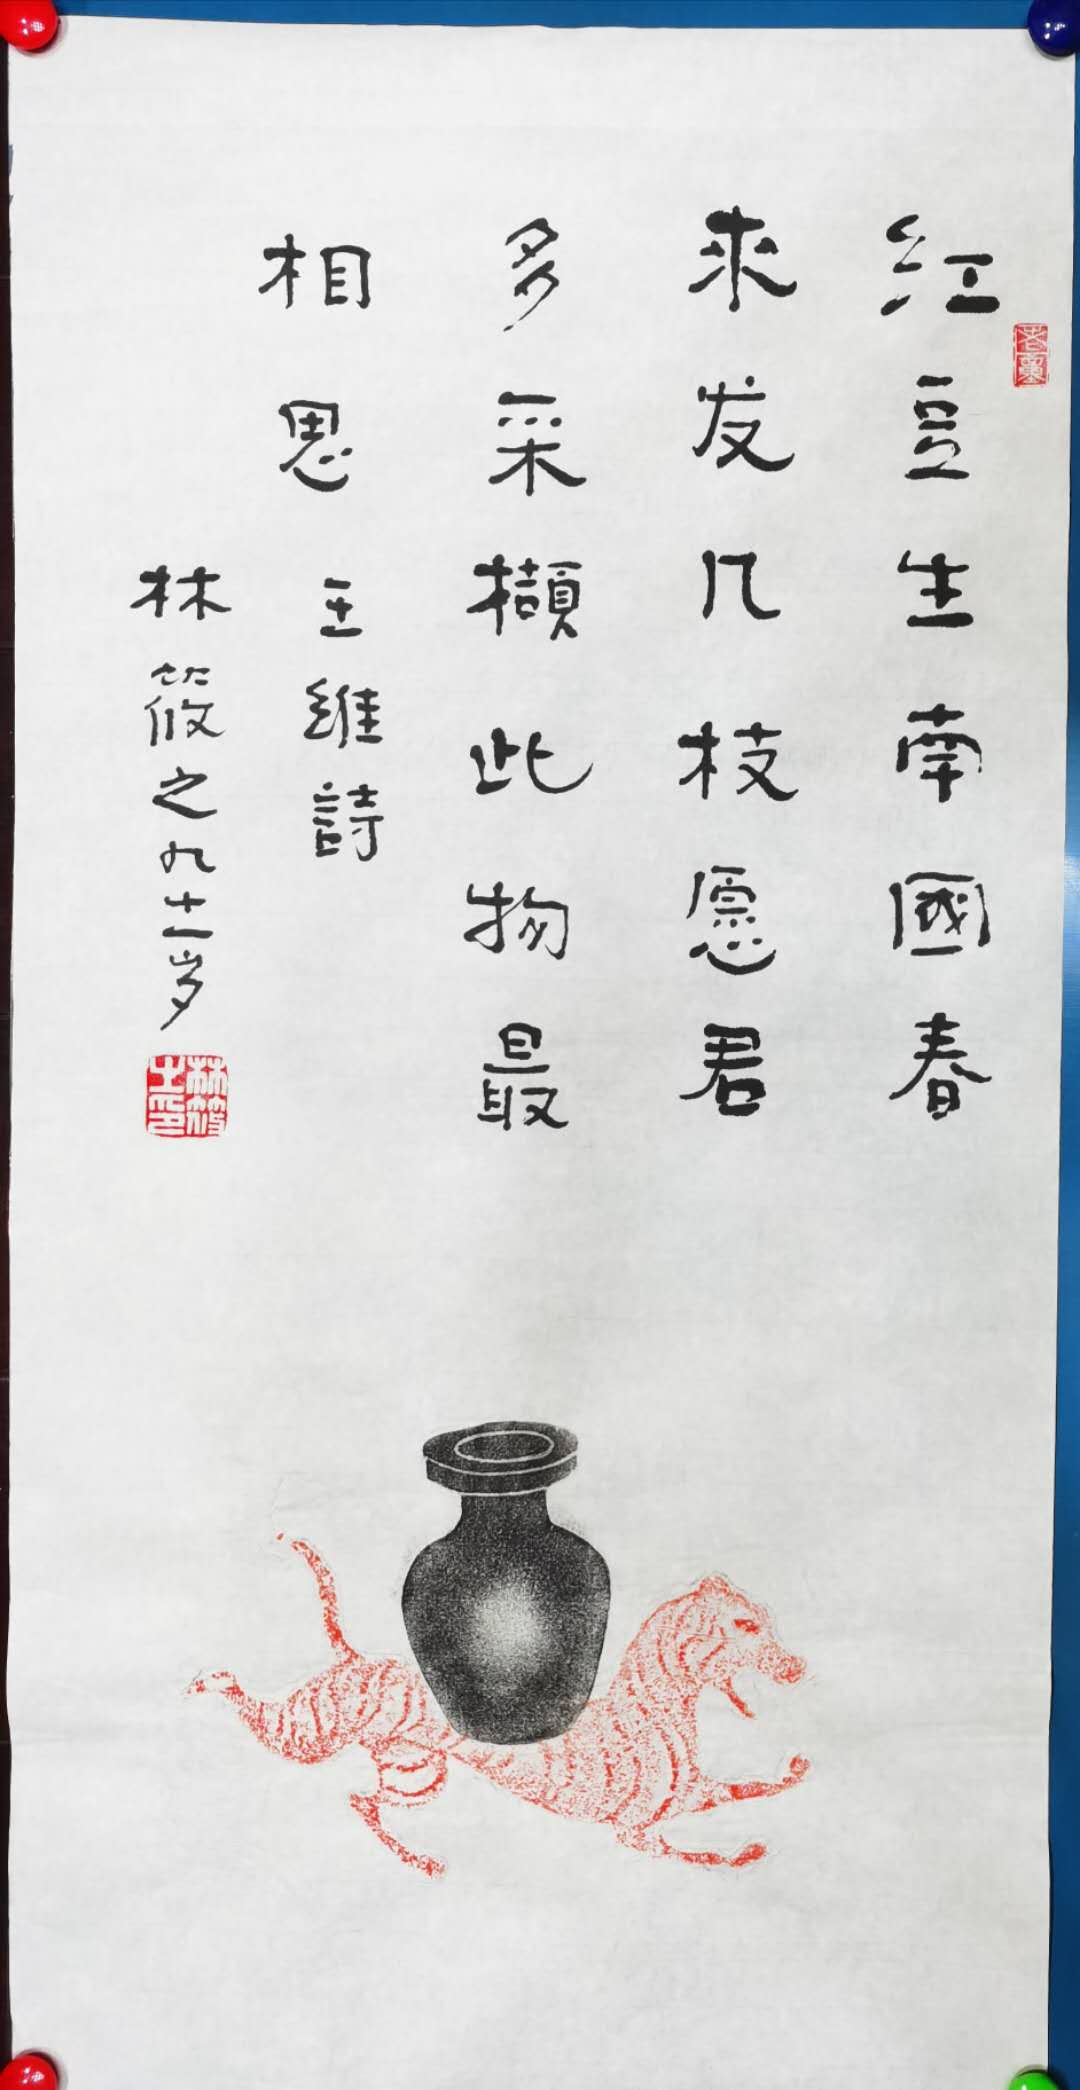 红豆生南國春
來发几枝愿君
多采擷此物最
相思
王維詩
林筱之九十一岁
林筱之印